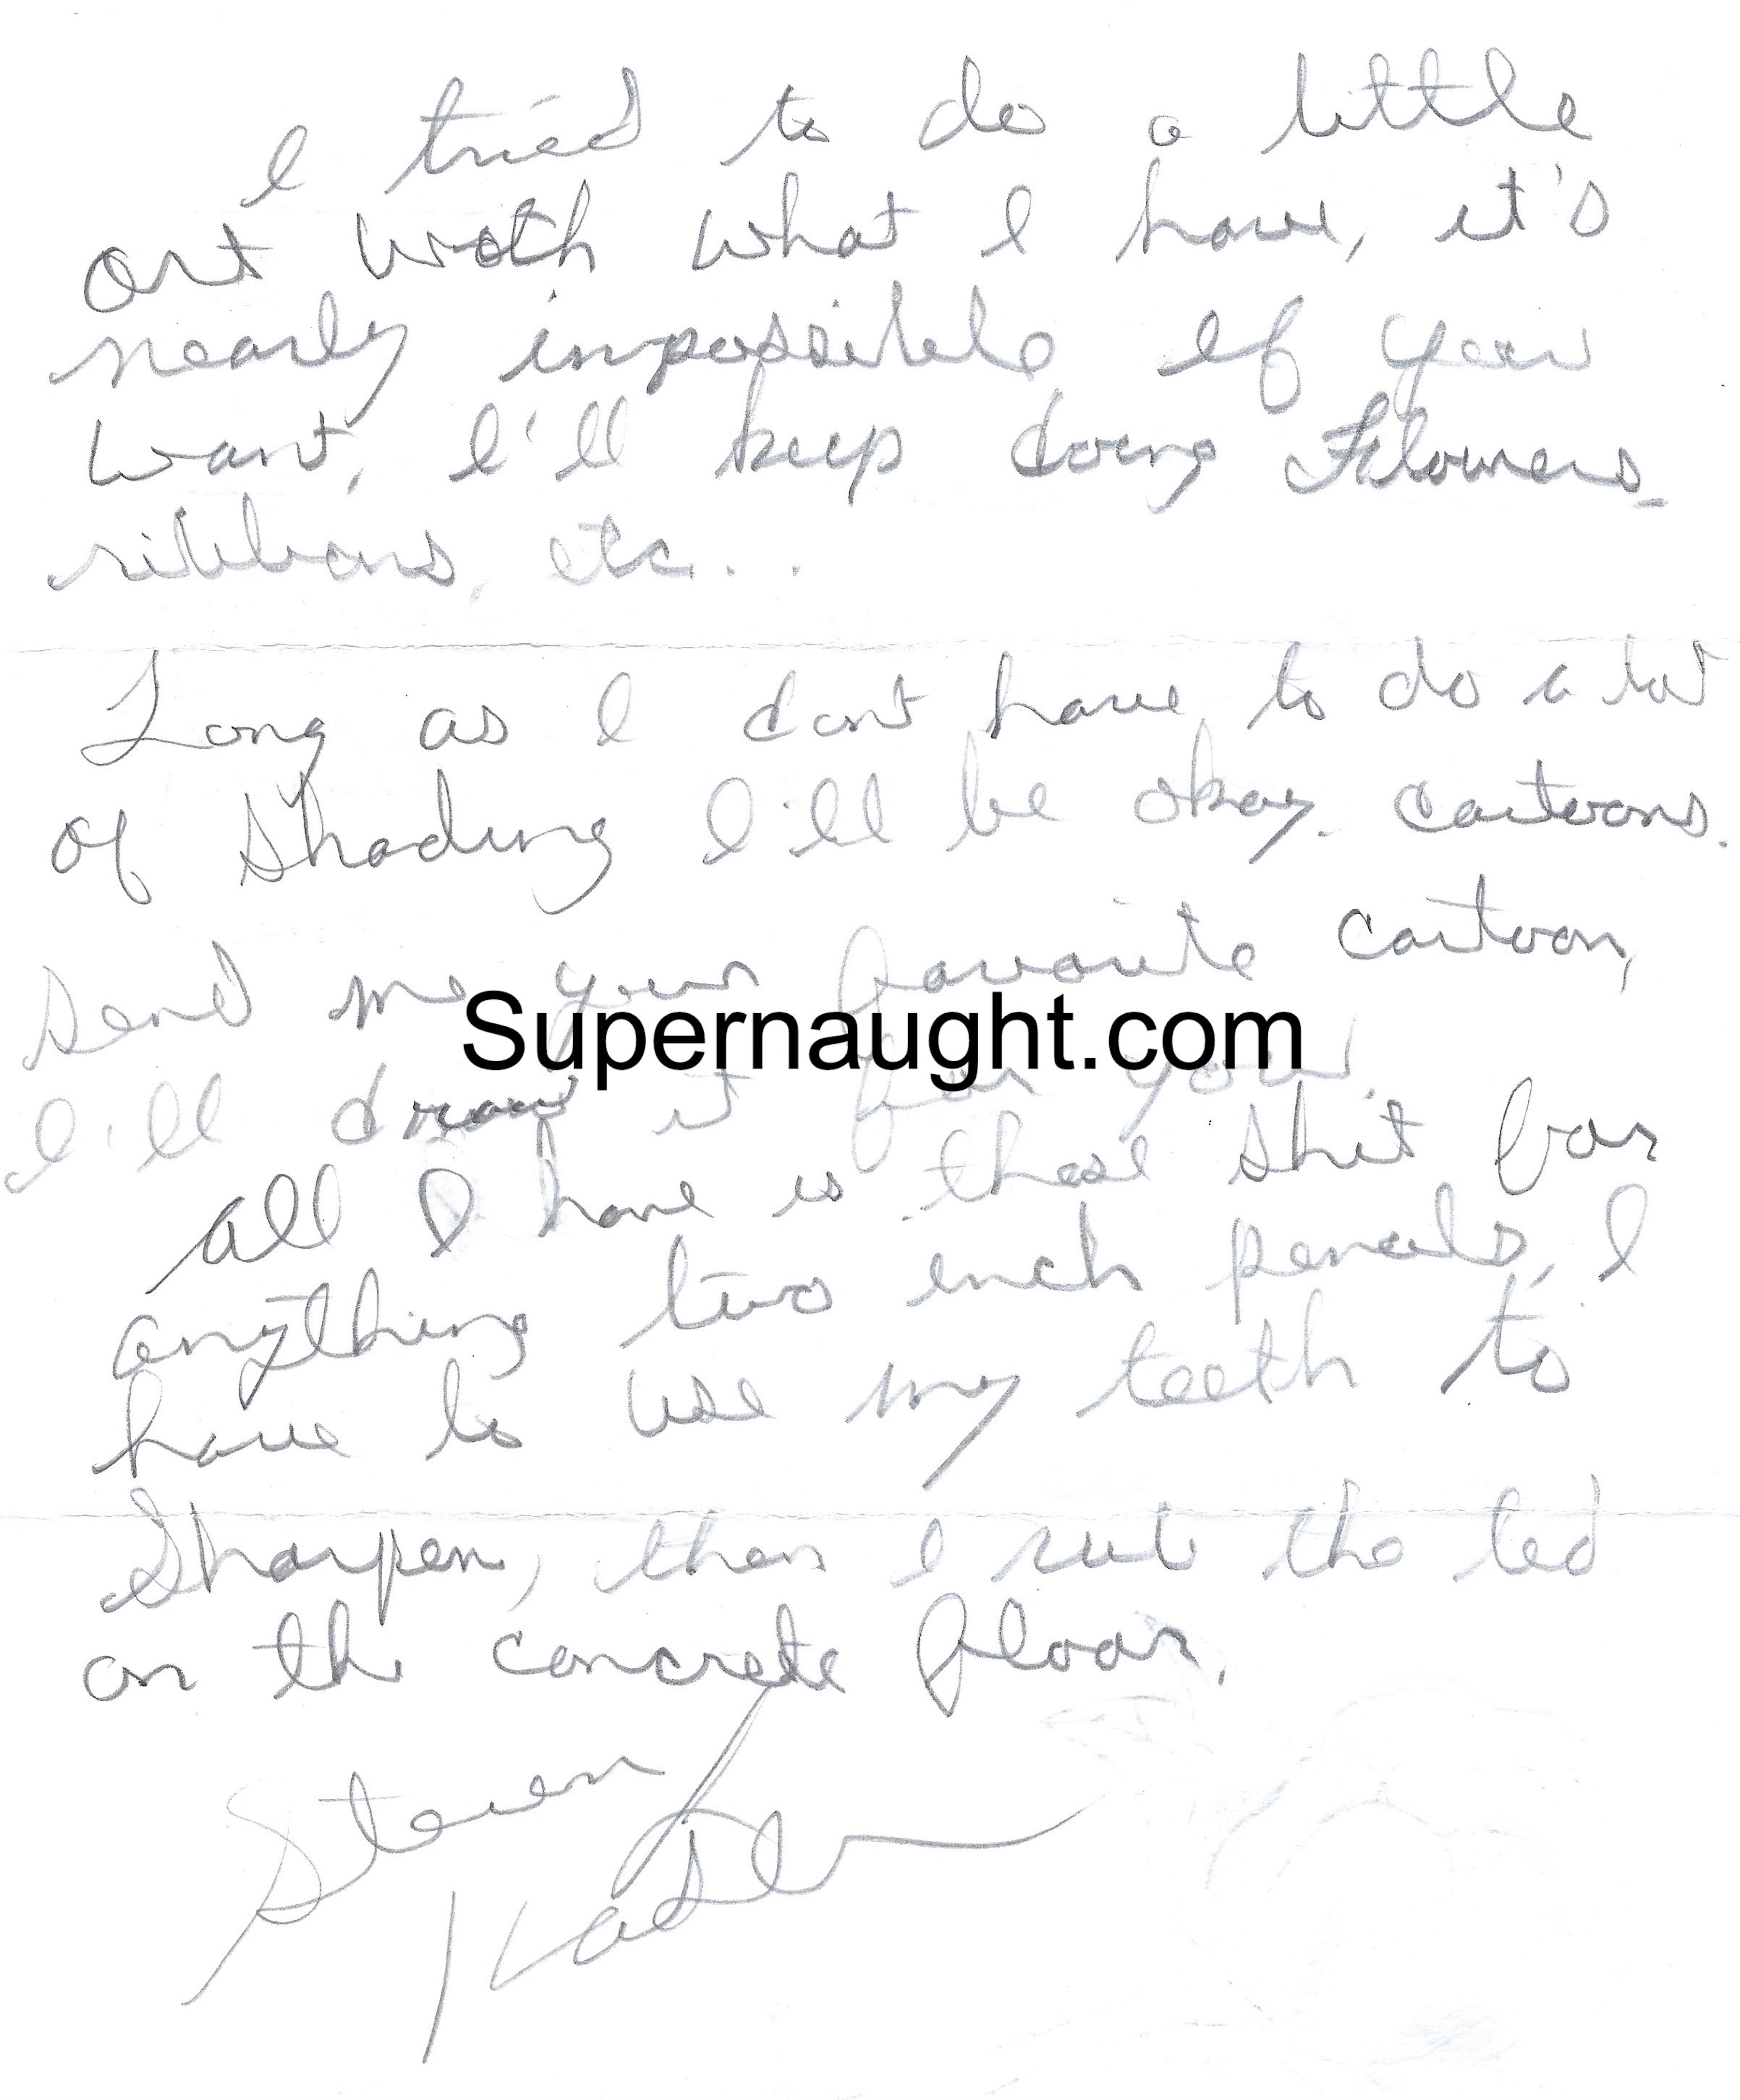 I tried to do a little
art with what I have, it's
nearly impossible if you
want, I'll keep doing Flowers
ribbons, etc...
Long as I dont have to do a lot
of shading I'll be okay. cartoons.
send me your favorite cartoon,
Supernaught.com
I'll draw it for you.
all I have is these shit for
anything two inch pencils, I
have to use my teeth to
sharpen, then I rub the led
on the concrete floor.
Steven